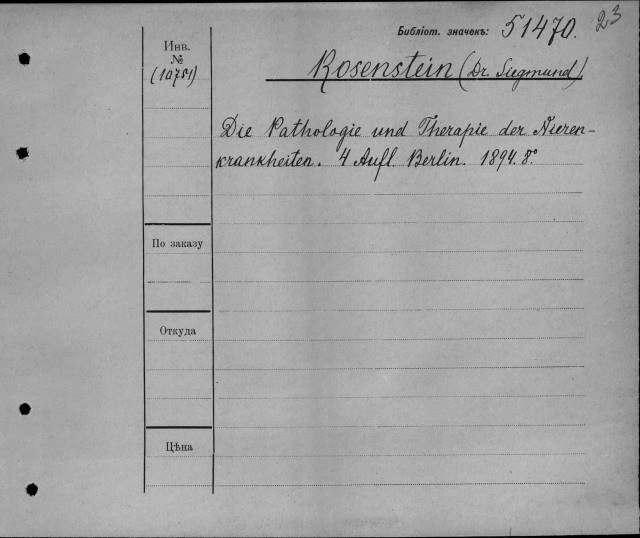 23
Библіот. значекъ: 51470.
Инв.
№
(10751)
Rosenstein (Dr. Siegmund)
Die Pathologie und Therapie der Nieren-
krankheiten. 4 Aufl. Berlin. 1894. 8°.
По заказу
Откуда
Цѣна